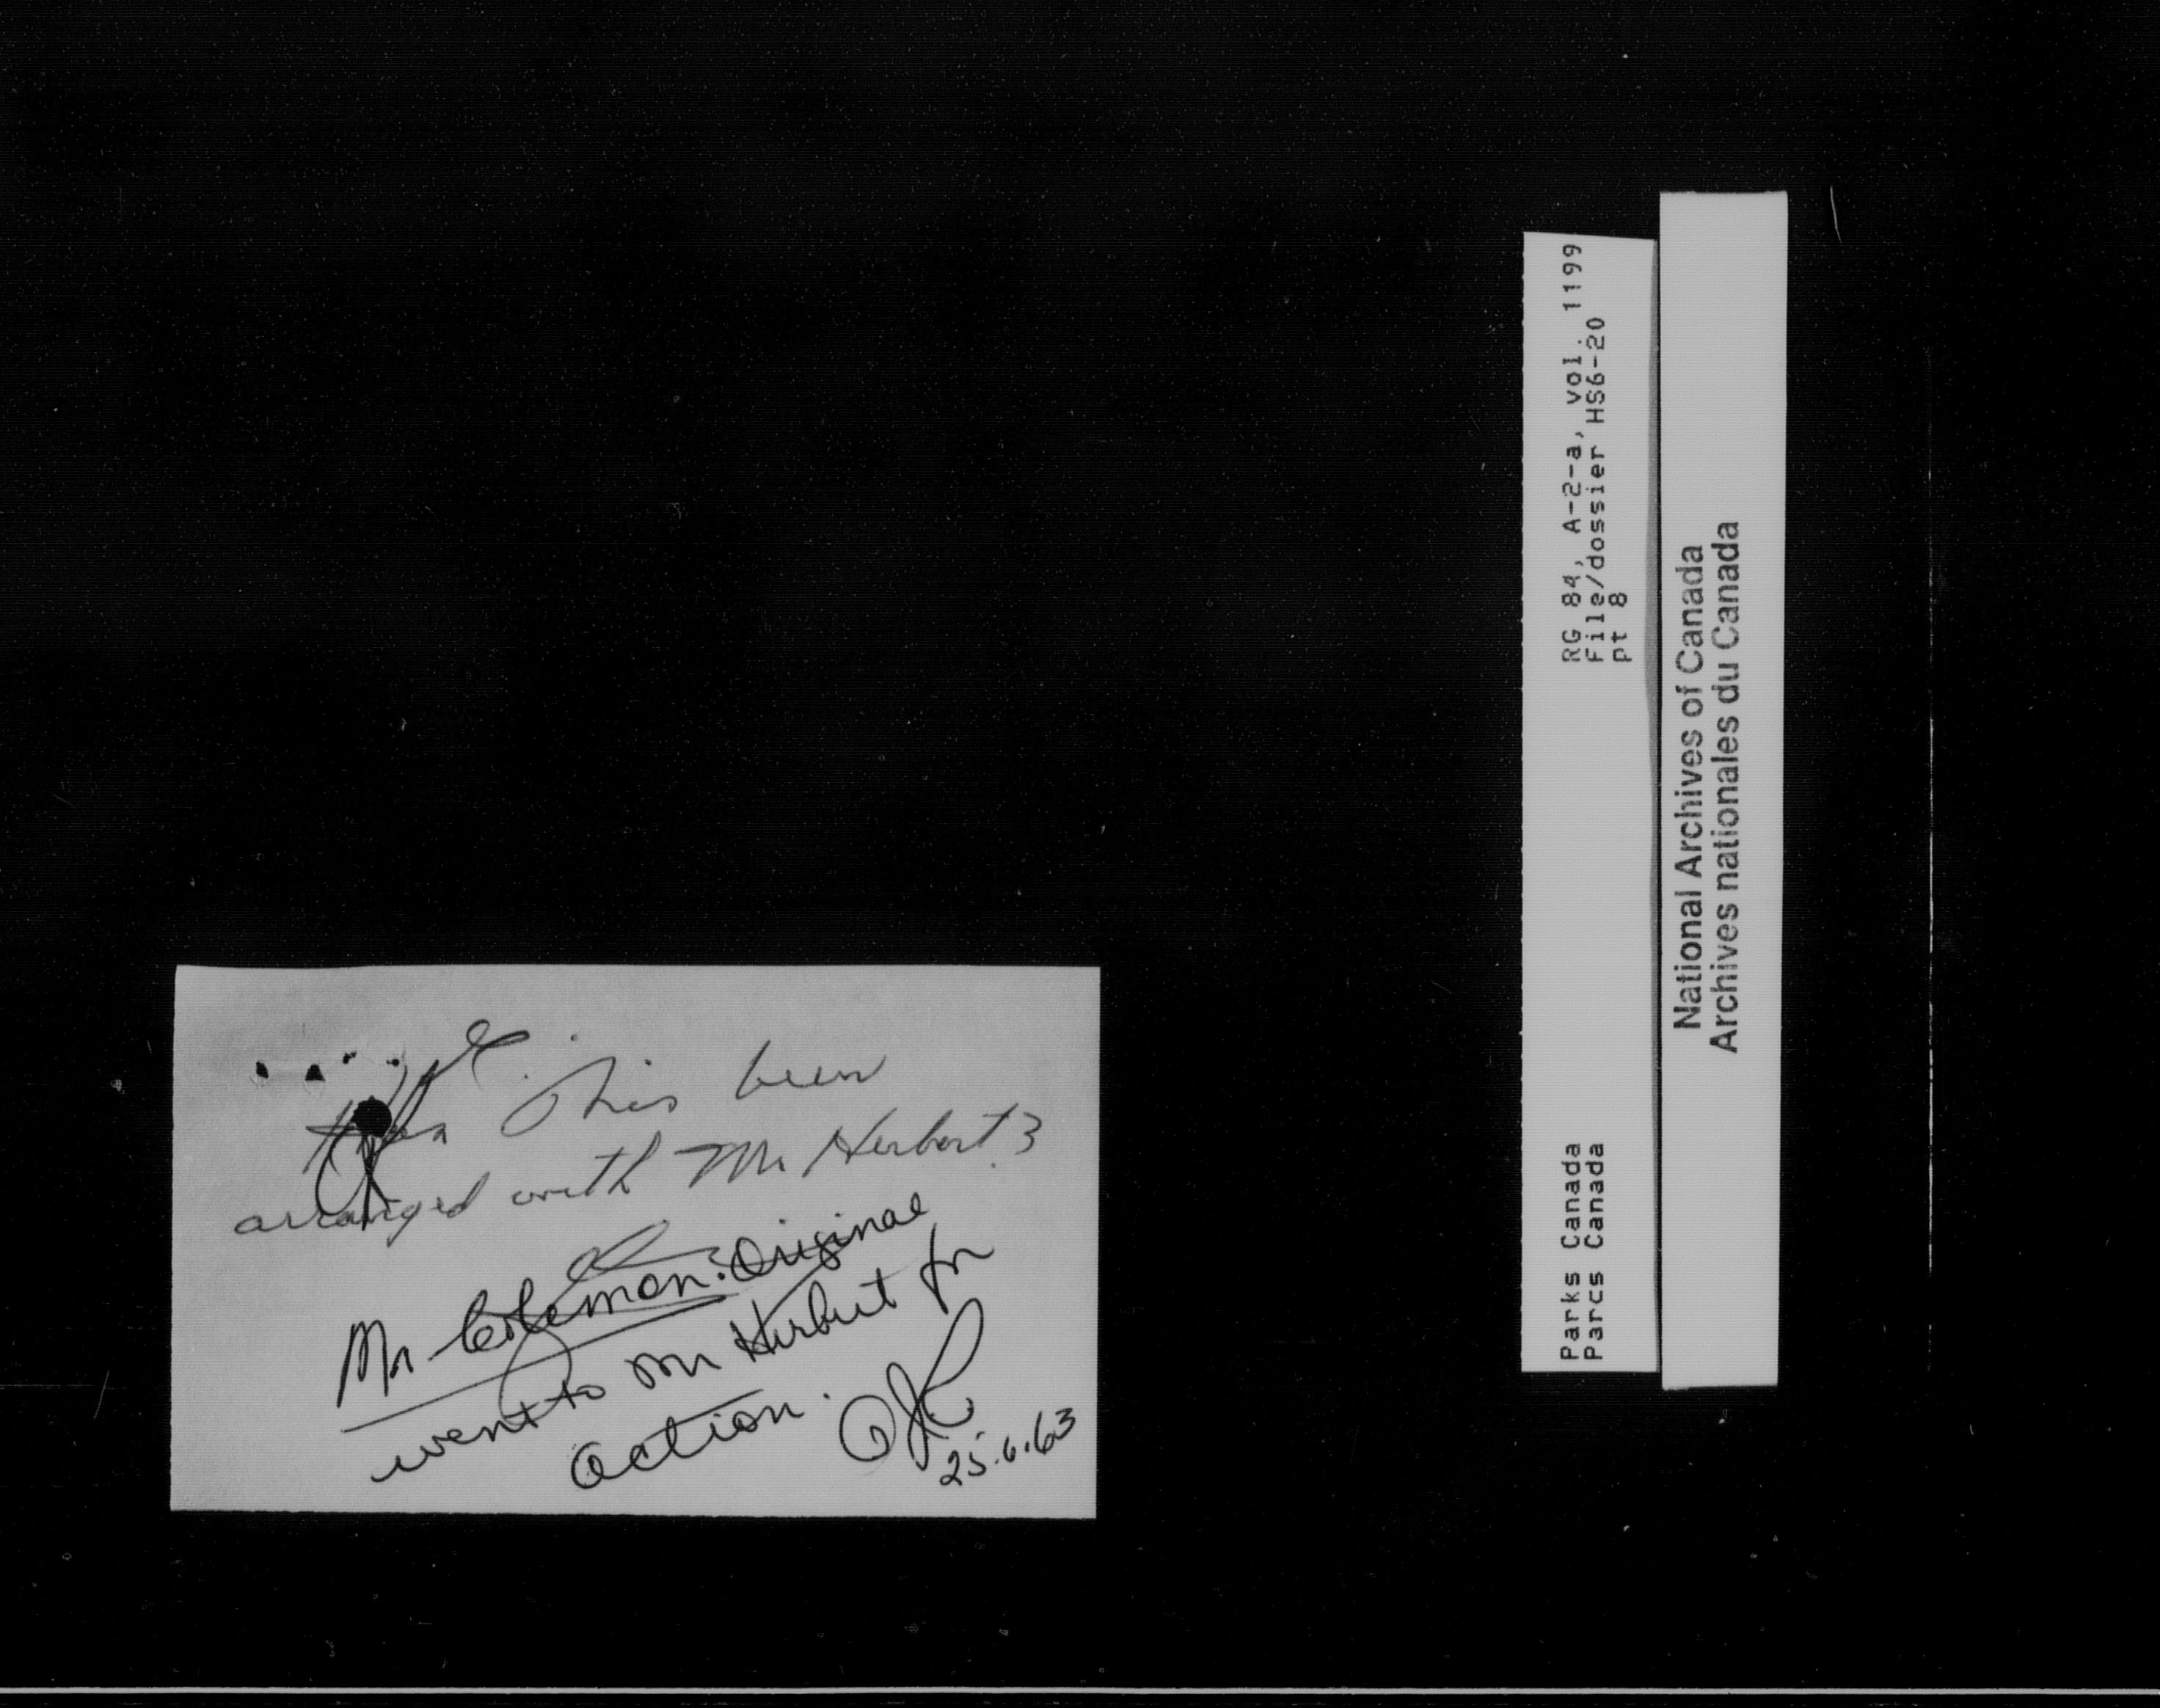 Has this been
arranged with Mr Herbert?
Mr Coleman. Original
went to Mr Herbert for
action.
25.6.63
RG 84, A-2-a, vol. 1199
File/dossier HS6-20
pt 8
Parks Canada
Parcs Canada
National Archives of Canada
Archives nationales du Canada